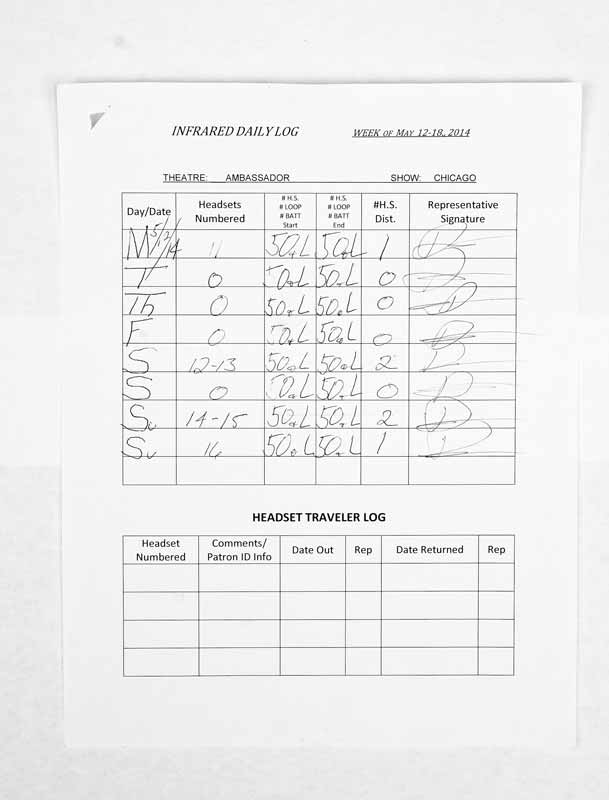 INFRARED DAILY LOG WEEK OF MAY 12-18, 2014
THEATRE: AMBASSADOR SHOW: CHICAGO
Day/Date Headsets Numbered # H.S. # LOOP # BATT Start # H.S. # LOOP # BATT End #H.S. Dist. Representative Signature
M 5/12/14 11 50 L 50 L 1
T 0 50 L 50 L 0
Th 0 50 L 50 L 0
F 0 50 L 50 L 0
S 12-13 50 L 50 L 2
S 0 50 L 50 L 0
Su 14-15 50 L 50 L 2
Su 16 50 L 50 L 1
HEADSET TRAVELER LOG
Headset Numbered Comments/ Patron ID Info Date Out Rep Date Returned Rep